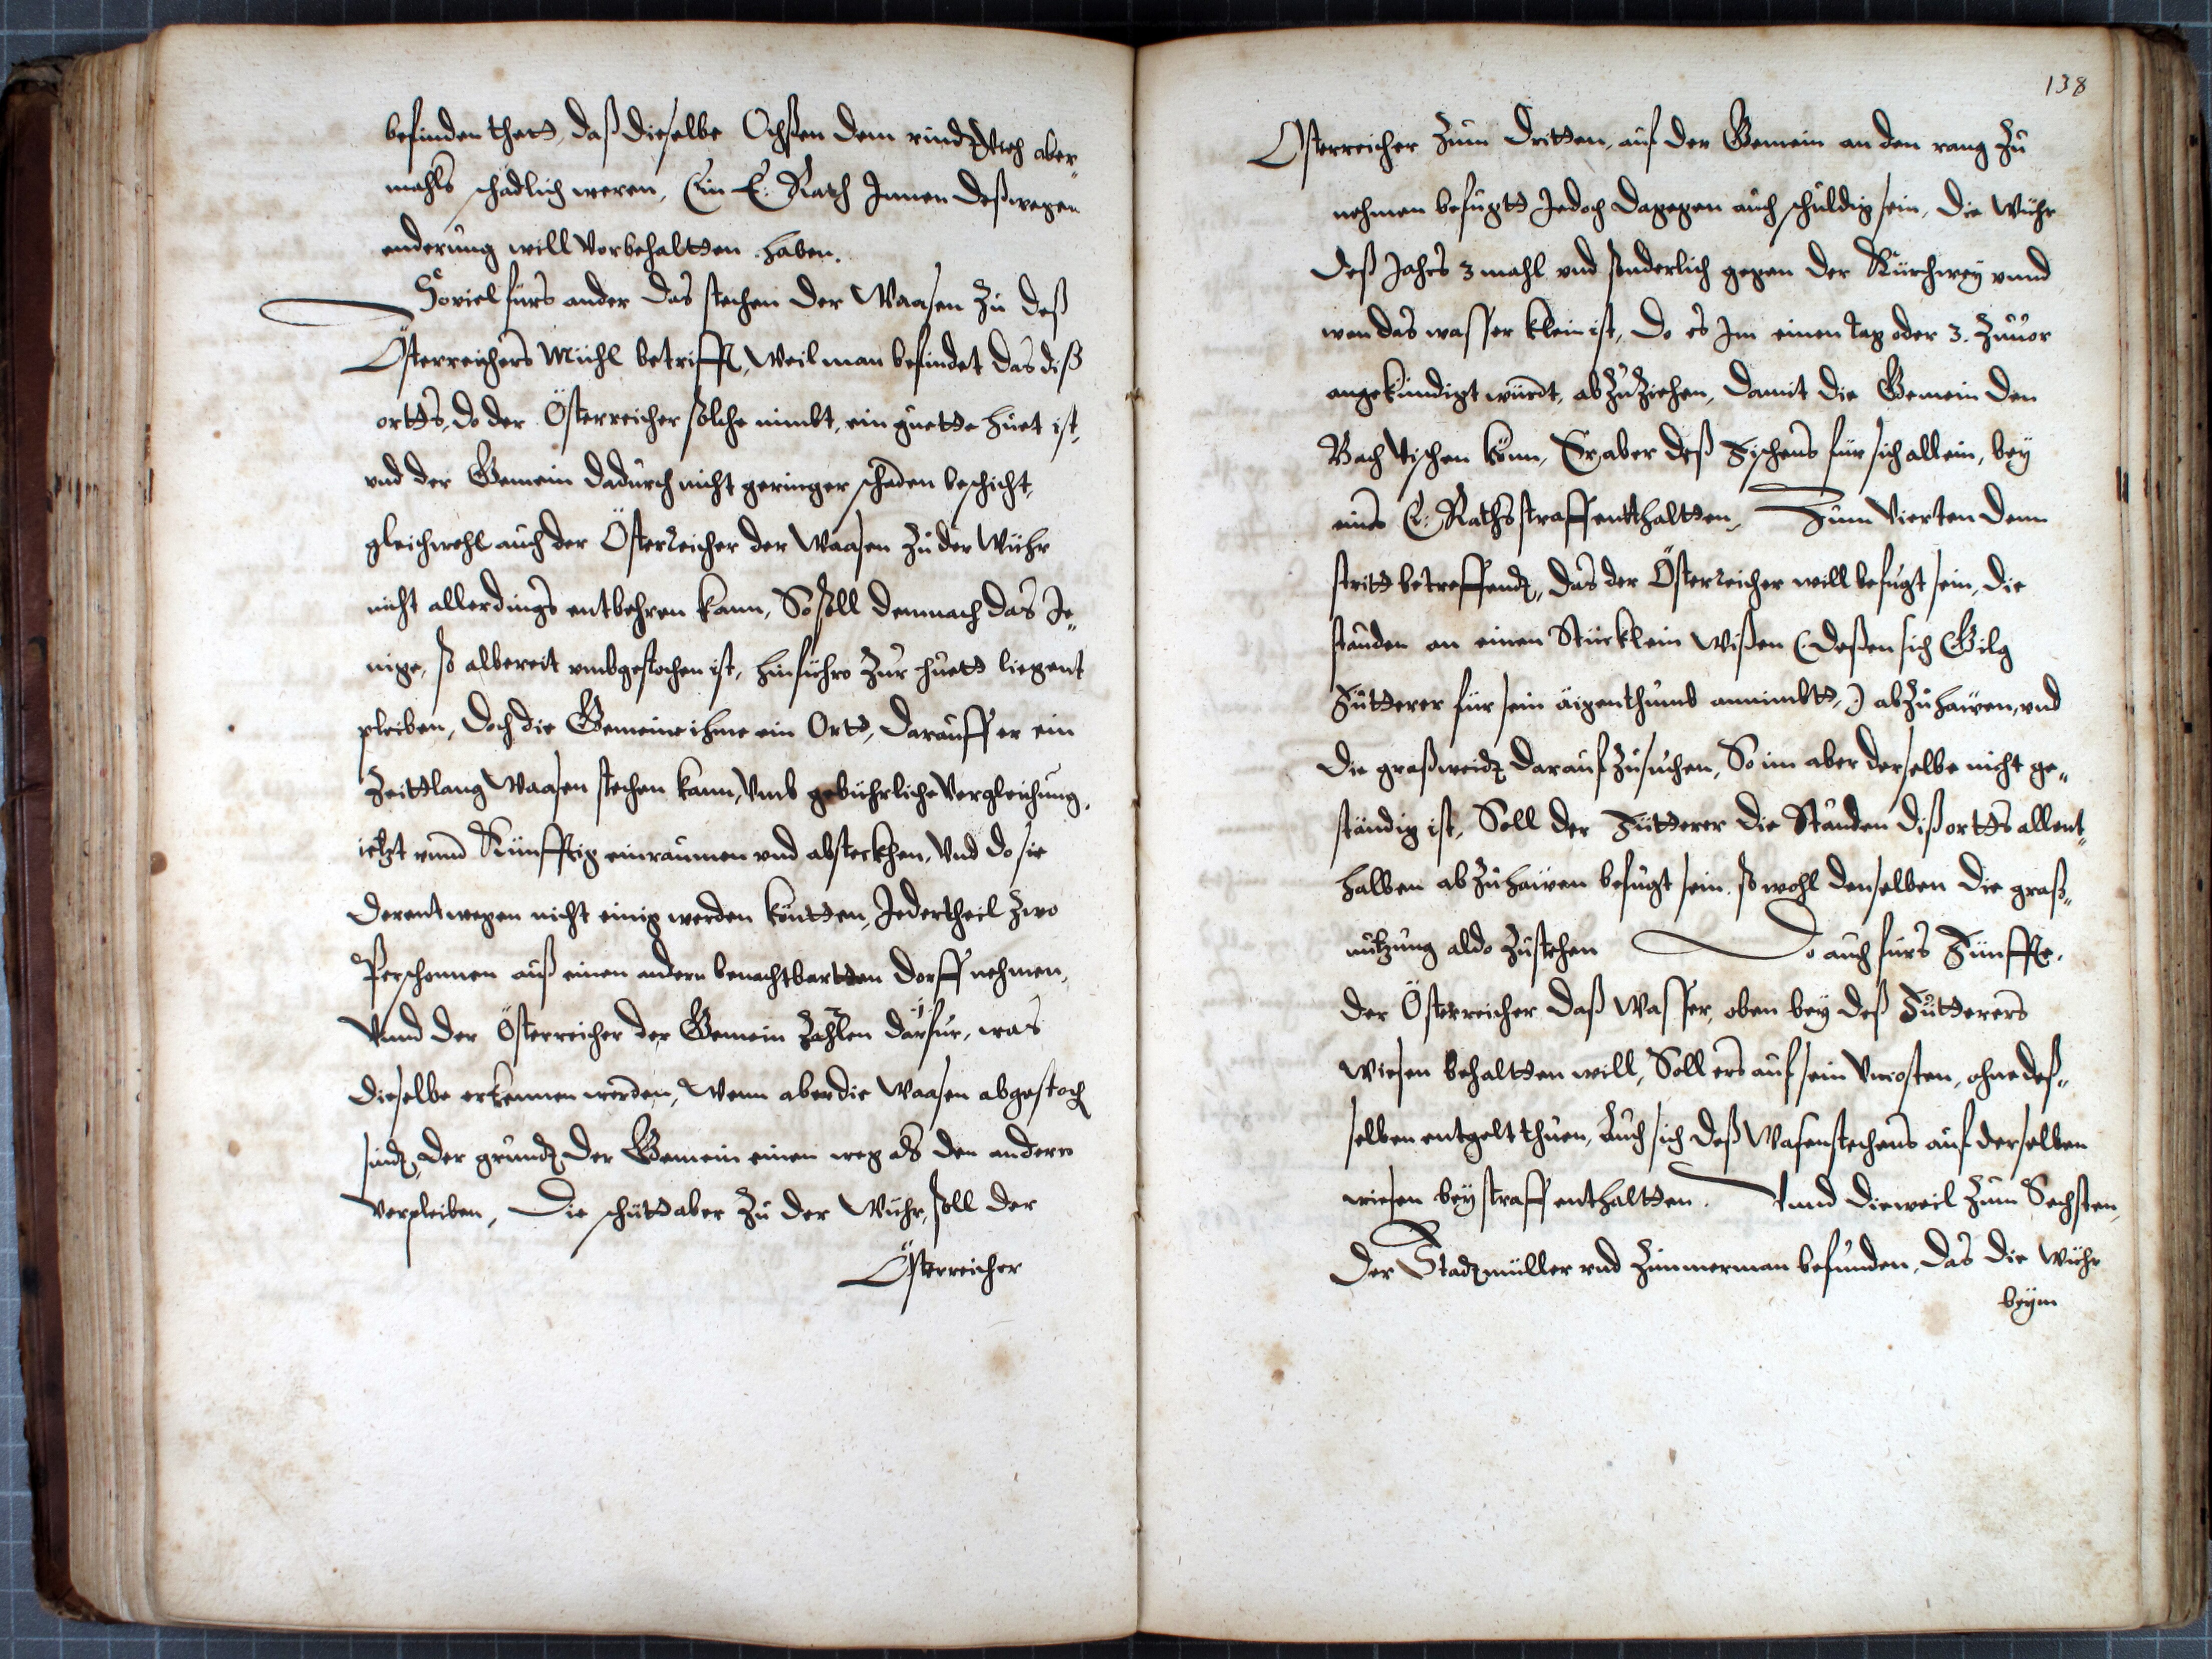 befinden thett, daß dieselbe Ochßen dem rindtvieh aber„
mahls schädlich weren, Ein E: Rath Jnnen deßwegen
enderung will Vorbehaltten haben.
Soviel fürs ander das stechen der Waasen zu deß
Österreichers Mühl betrifft, Weil man befindet das diß
ortts, do der Österreicher solche nimbt, ein guette huet ist,
vnd der Gemein dadurch nicht geringer schaden beschicht,
gleichwohl auch der Österreicher der Waasen zu der Wühr
nicht allerdings entbehren kann, So soll demnach das Je„
nige, so albereit vmbgestochen ist, hinführo zur huett liegent
pleiben, doch die Gemeine ihme ein Ortt, darauff er ein
Zeittlang Waasen stechen kann, Vmb gebührliche Vergleichung,
ietzt vnnd Künfftig einraumen vnd absteckhen, Vnd do sie
derentwegen nicht einig werden köntten, Jedertheil zwo
Perschonnen auß einen andern benachtbartten dorff nehmen,
Vnnd der Österreicher der Gemein zahlen darfür, was
dieselbe erkennen werden, Wenn aber die Waasen abgestoch
sindt, der grundt der Gemein einen weg als den andern
Verpleiben, Die schütt aber zu der Wühr, soll der
Österreicher
138
Österreicher zum dritten, auf der Gemein an den rang zu
nehmen befugtt Jedoch dagegen auch schuldig sein, die Wühr
deß Jahrs 3 mahl vnd sonderlich gegen der Kürchwey vnnd
wan das wasser klein ist, do es Jm einen tag oder 3. zuuor
angekündigt würdt, abzuziehen, damit die Gemein den
Bach Vischen könn, Er aber deß Fischens für sich allein, bey
eines E: Raths straff entthaltten, Zum Vierten denn
stritt betreffendt, das der Österreicher will befugt sein, die
stauden an einen Stücklein Wißen (deßen sich Gilg
Fütterer für sein äigenthumb annimbtt,) abzuhawen, vnd
die graßweidt darauf zusuchen, So im aber derselbe nicht ge„
ständig ist, Soll der Fütterer die Stauden diß ortts allent„
halben abzuhawen befugt sein. so wohl denselben die graß„
nutzung aldo zustehen Do auch fürs Fünffte,
der Österreicher daß Wasser, oben bey deß Fütterers
Wiesen behaltten will, Soll ers auf sein Vncosten, ohne deß„
selben entgelt thuen, Auch sich deß Wasenstechens auf derselben
wiesen bey straff enthaltten. Vnnd dieweil zum Sechsten,
Der Stadtmüller vnd Zimmerman befunden, das die Wühr
beym